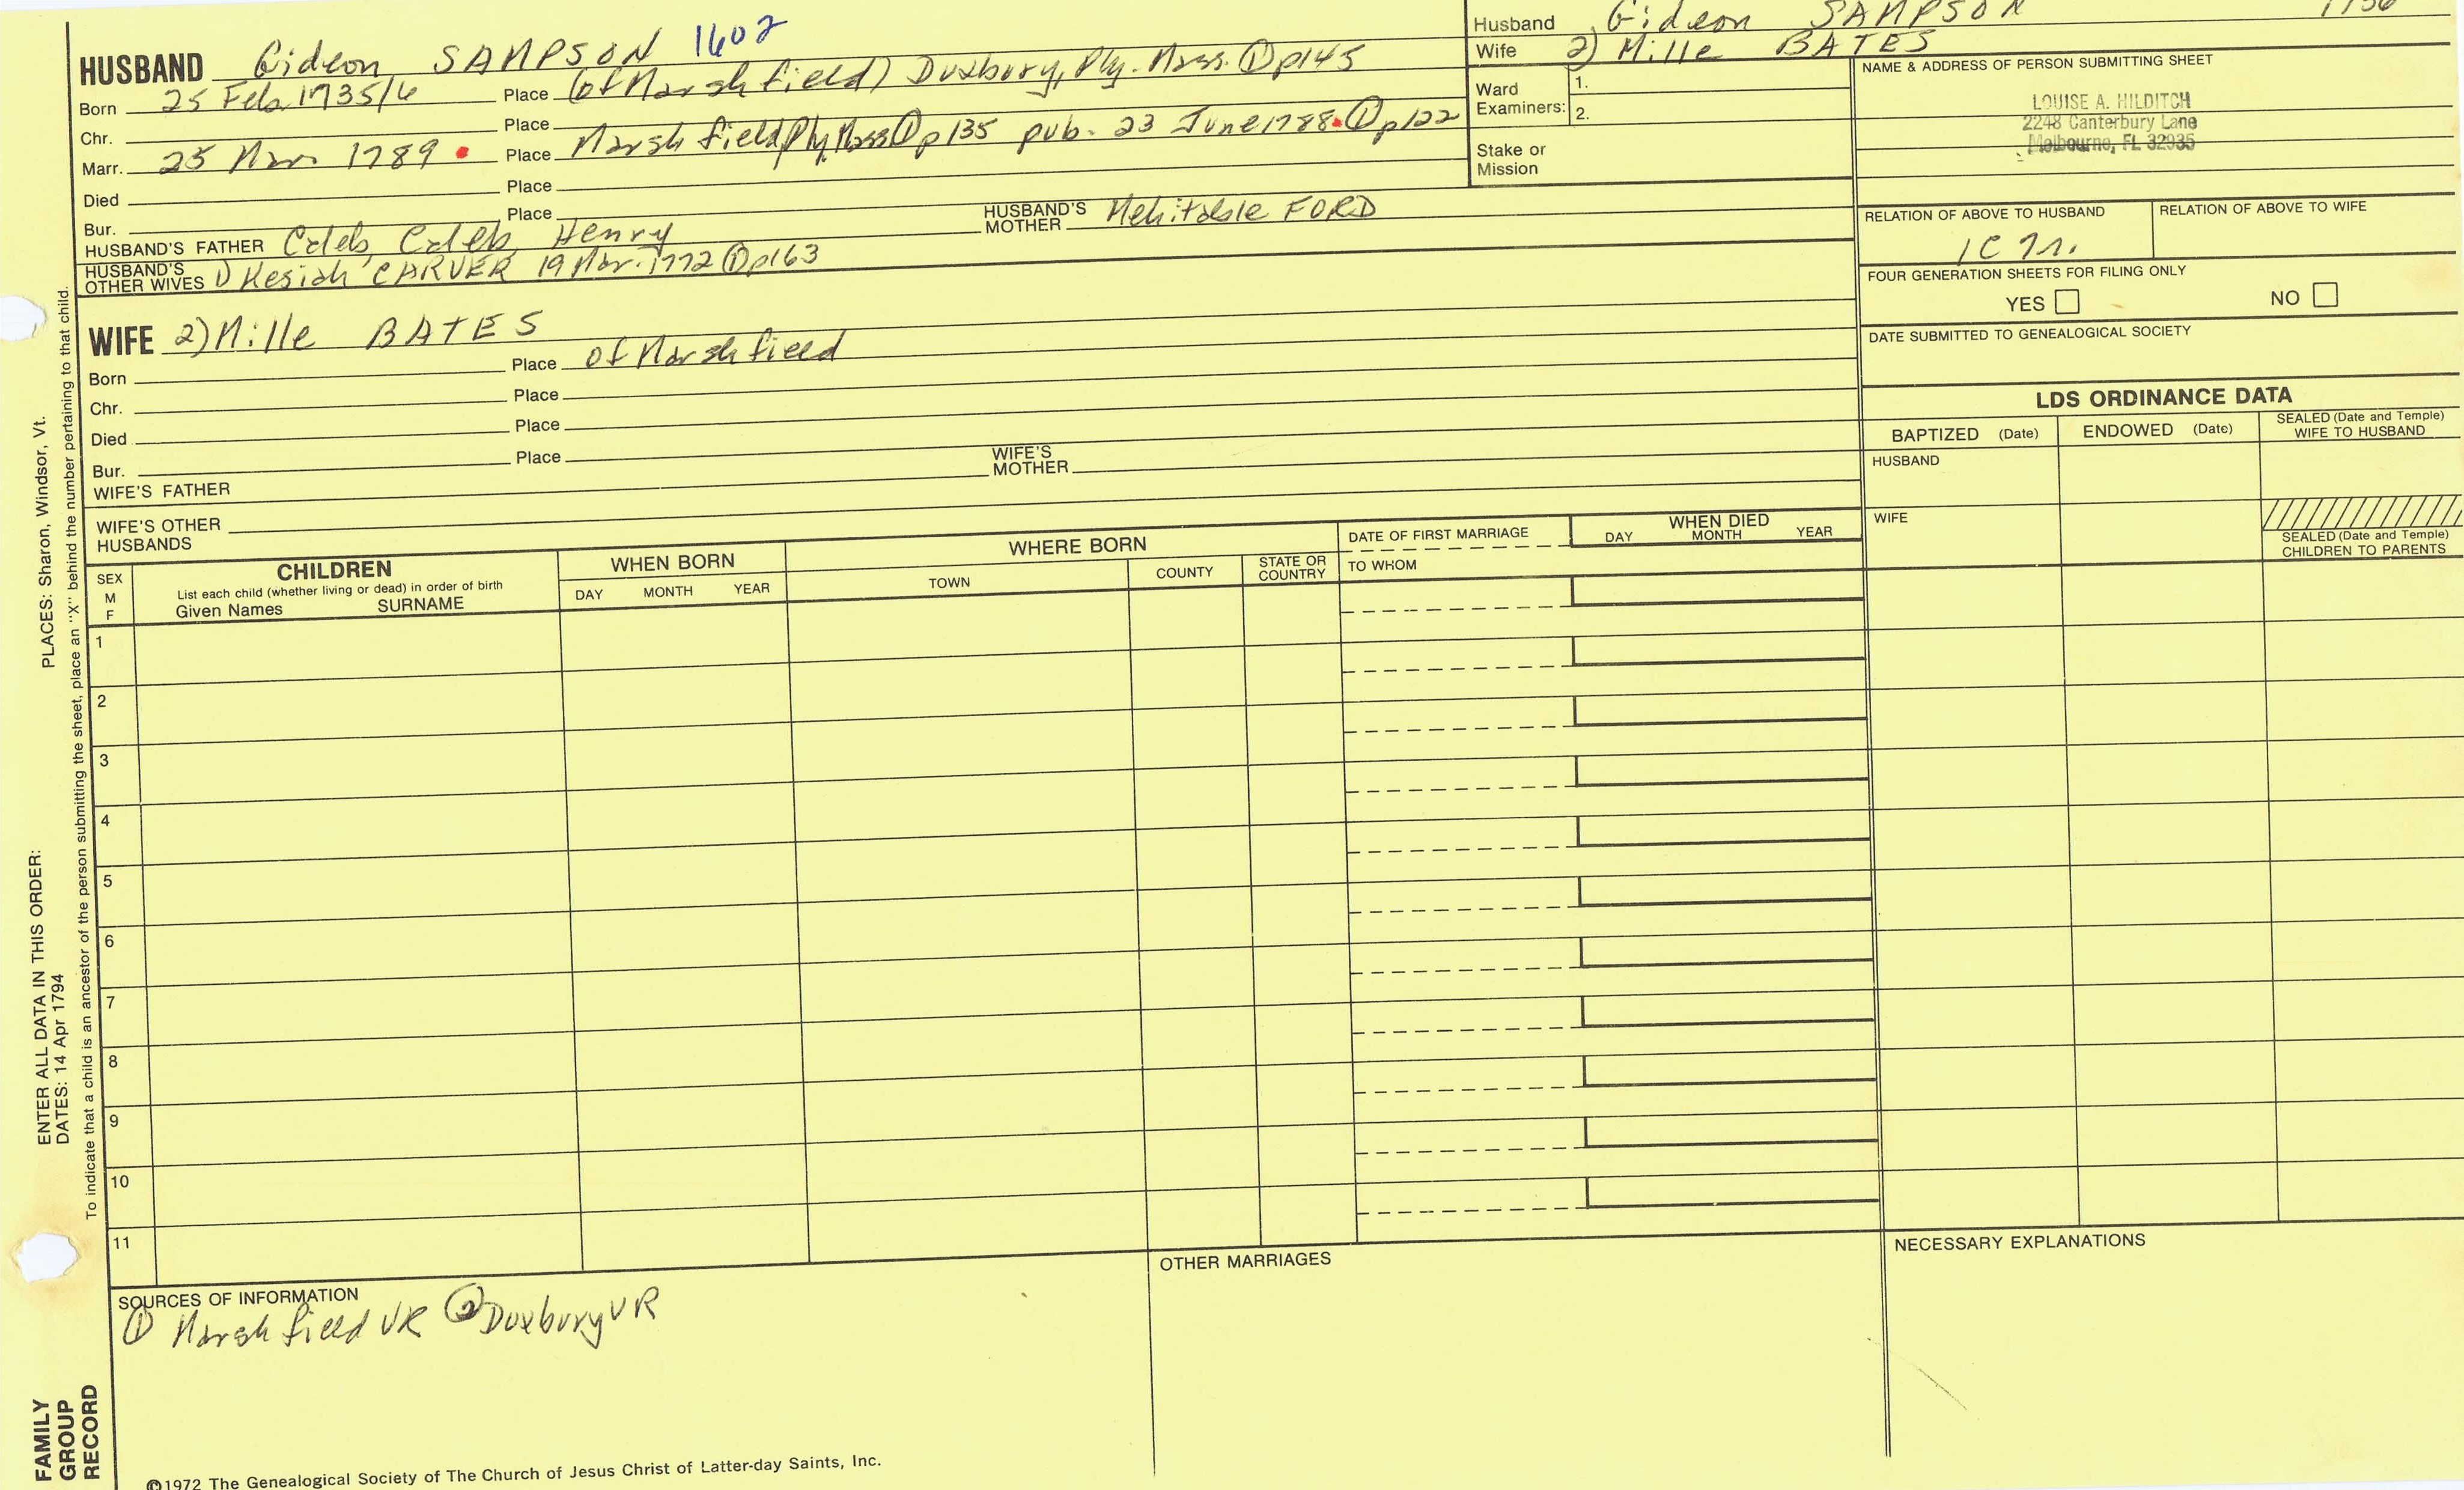 HUSBAND Gideon SAMPSON 1602
Born 25 Feb 1735/6 Place (of Marshfield) Duxbury, Ply. Mass. ① p145
Chr. Place
Marr. 25 Mar 1789 Place Marshfield, Ply, Mass ① p135 pub. 23 June 1788 ① p122
Died Place
Bur. Place
HUSBAND'S FATHER Caleb, Caleb, Henry HUSBAND'S MOTHER Mehitable FORD
HUSBAND'S OTHER WIVES 1) Kesiah CARVER 19 Mar. 1772 ① p163
Husband Gideon SAMPSON 1736
Wife 2) Mille BATES
Ward Examiners: 1.
2.
Stake or Mission
NAME & ADDRESS OF PERSON SUBMITTING SHEET
LOUISE A. HILDITCH
2248 Canterbury Lane
Melbourne, FL 32935
RELATION OF ABOVE TO HUSBAND RELATION OF ABOVE TO WIFE
1C
FOUR GENERATION SHEETS FOR FILING ONLY
YES NO
DATE SUBMITTED TO GENEALOGICAL SOCIETY
WIFE 2) Mille BATES
Born Place of Marshfield
Chr. Place
Died Place
Bur. Place
WIFE'S FATHER WIFE'S MOTHER
WIFE'S OTHER HUSBANDS
LDS ORDINANCE DATA
BAPTIZED (Date) ENDOWED (Date) SEALED (Date and Temple) WIFE TO HUSBAND
HUSBAND
WIFE
SEALED (Date and Temple) CHILDREN TO PARENTS
SEX M F
CHILDREN
List each child (whether living or dead) in order of birth
Given Names SURNAME
WHEN BORN
DAY MONTH YEAR
WHERE BORN
TOWN COUNTY STATE OR COUNTRY
DATE OF FIRST MARRIAGE
TO WHOM
WHEN DIED
DAY MONTH YEAR
1
2
3
4
5
6
7
8
9
10
11
SOURCES OF INFORMATION
① Marshfield VR ② Duxbury VR
OTHER MARRIAGES
NECESSARY EXPLANATIONS
ENTER ALL DATA IN THIS ORDER: PLACES: Sharon, Windsor, Vt.
DATES: 14 Apr 1794
To indicate that a child is an ancestor of the person submitting the sheet, place an "X" behind the number pertaining to that child.
FAMILY
GROUP
RECORD
©1972 The Genealogical Society of The Church of Jesus Christ of Latter-day Saints, Inc.